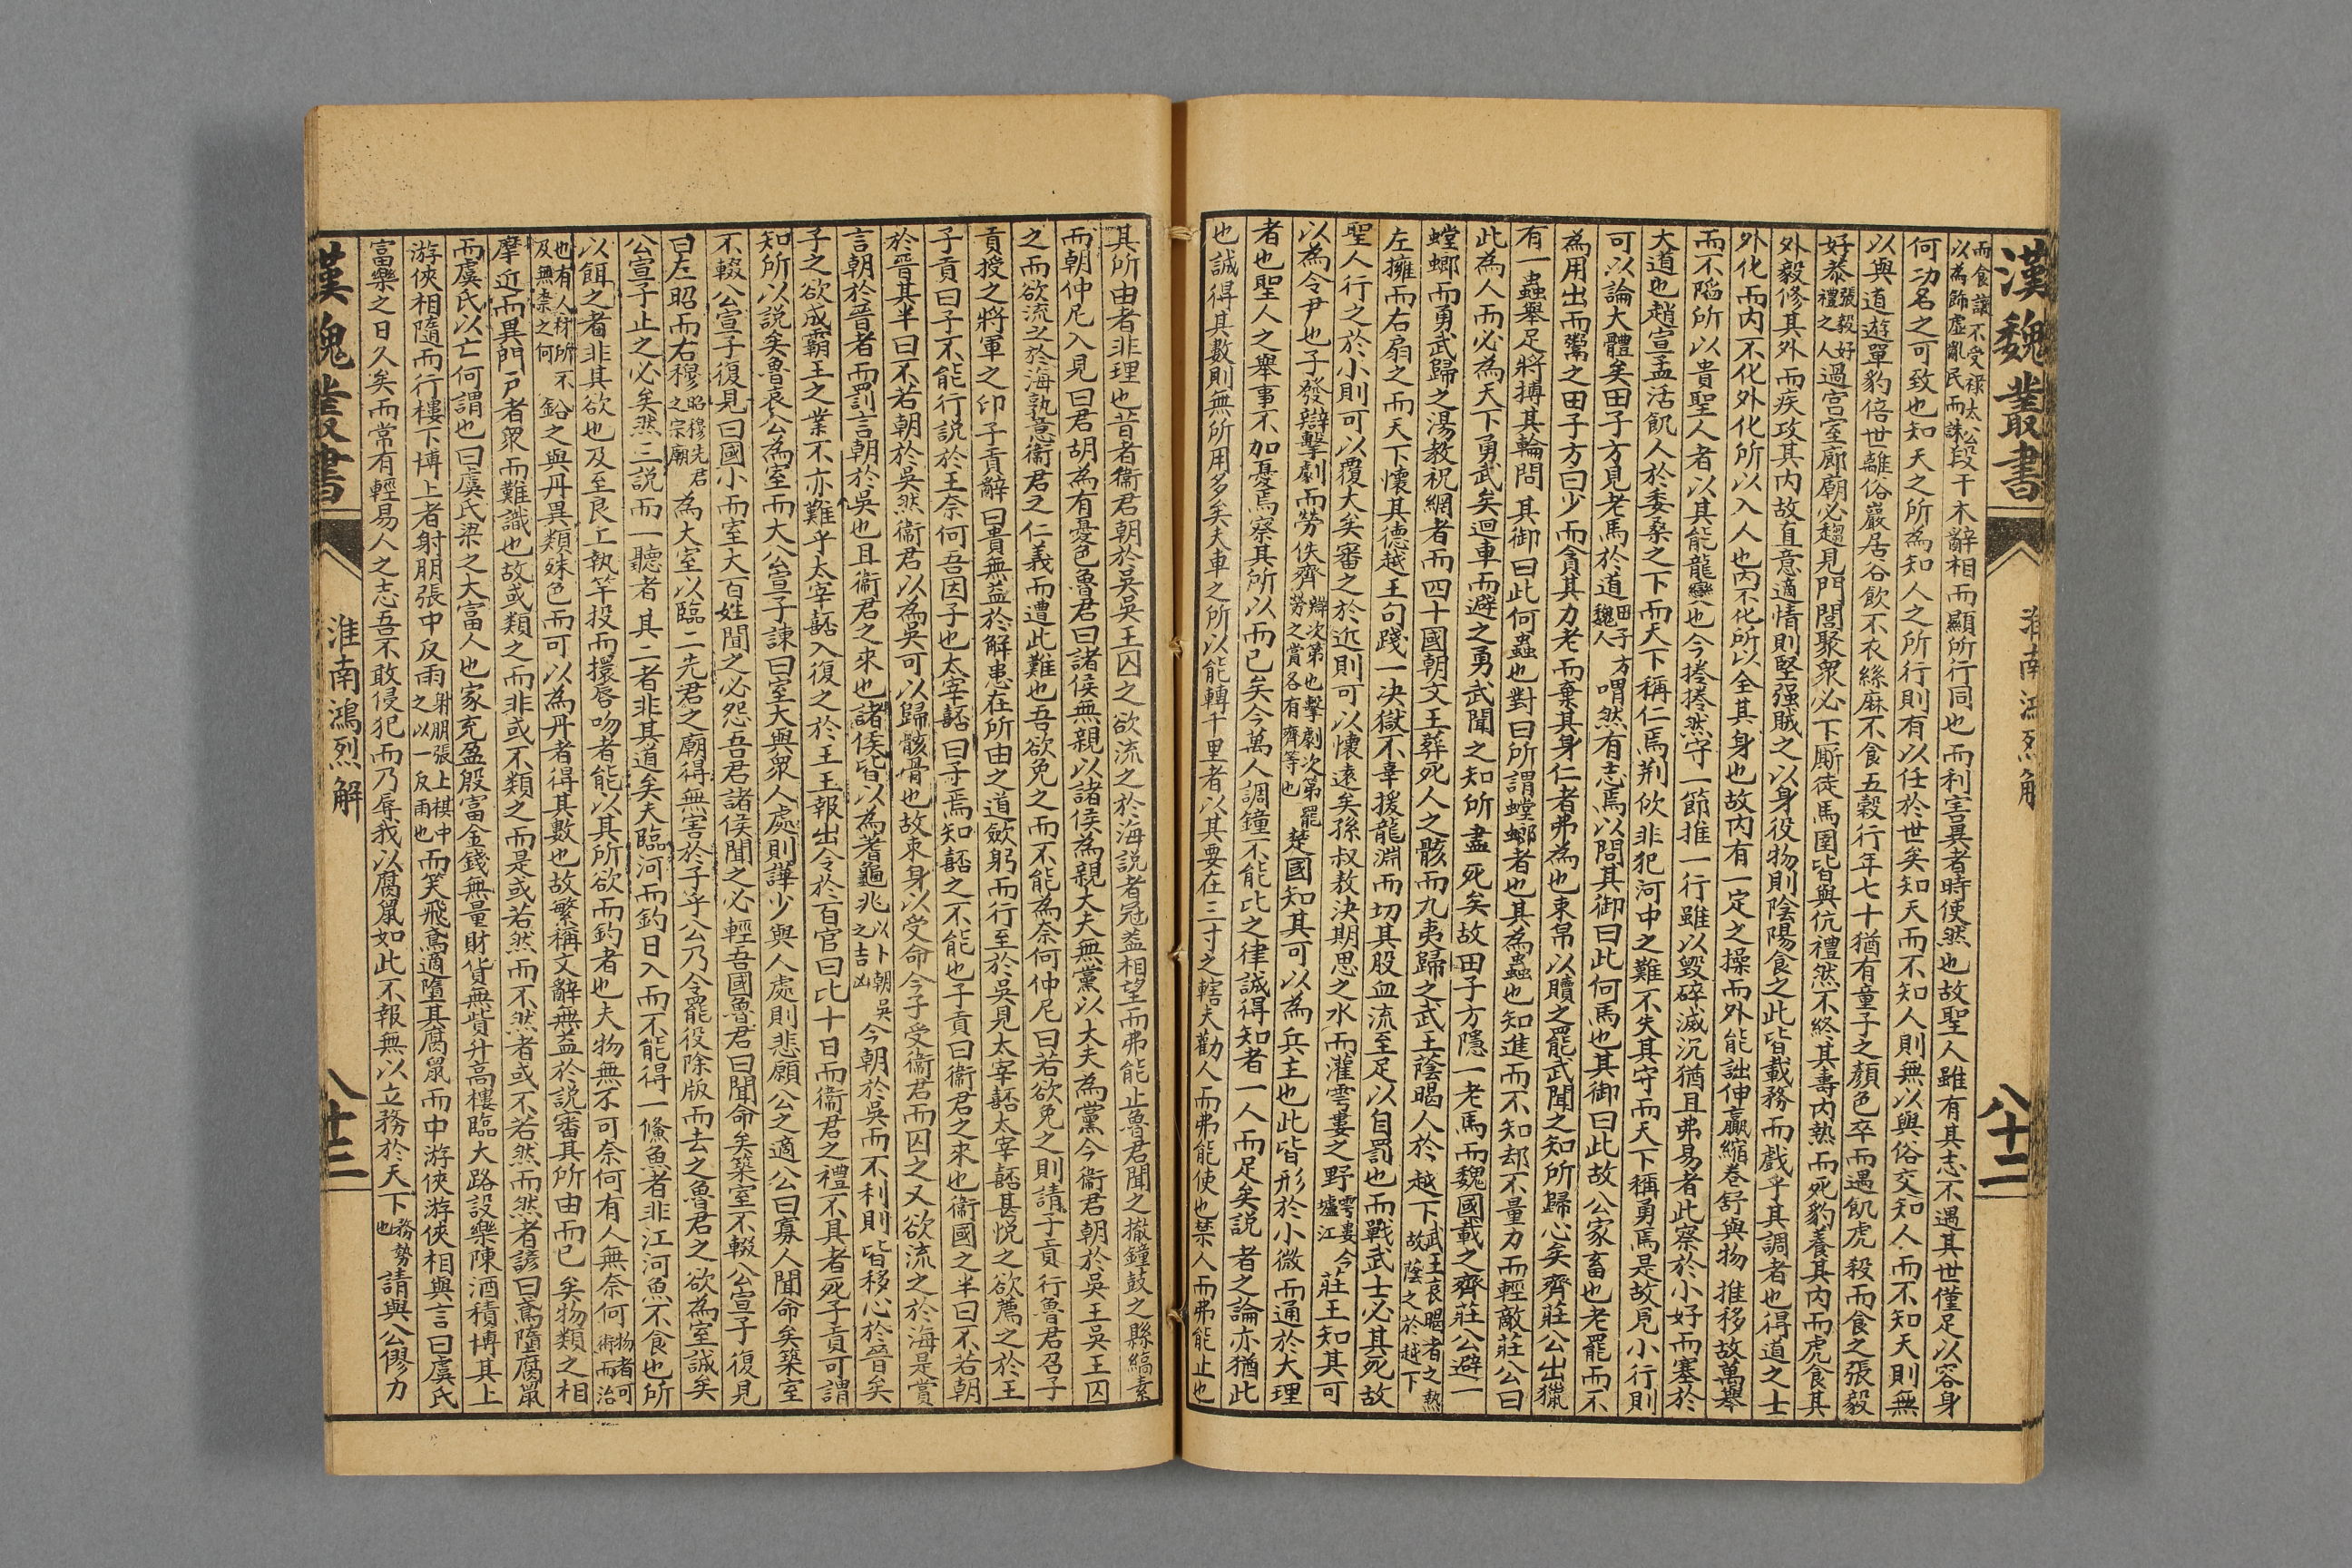 漢魏叢書 淮南鴻烈解 八十二
而食讓不受祿太公以為飾虛亂民而誅段干木辭相而顯所行同也而利害異者時使然也故聖人雖有其志不遇其世僅足以容身
何功名之可致也知天之所為知人之所行則有以任於世矣知天而不知人則無以與俗交知人而不知天則無
以與道遊單豹倍世離俗巖居谷飲不衣絲麻不食五穀行年七十猶有童子之顏色卒而遇飢虎殺而食之張毅
好恭張毅好禮之人過宮室廊廟必趨見門閭聚眾必下廝徒馬圉皆與伉禮然不終其壽內熱而死豹養其內而虎食其
外毅修其外而疾攻其內故直意適情則堅强賊之以身役物則陰陽食之此皆載務而戲乎其調者也得道之士
外化而內不化外化所以入人也內不化所以全其身也故內有一定之操而外能詘伸贏縮卷舒與物推移故萬舉
而不陷所以貴聖人者以其能龍變也今捲捲然守一節推一行雖以毀碎滅沉猶且弗易者此察於小好而塞於
大道也趙宣孟活飢人於委桑之下而天下稱仁焉荆佽非犯河中之難不失其守而天下稱勇焉是故見小行則
可以論大體矣田子方見老馬於道田子方魏人喟然有志焉以問其御曰此何馬也其御曰此故公家畜也老罷而不
為用出而鬻之田子方曰少而貪其力老而棄其身仁者弗為也束帛以贖之罷武聞之知所歸心矣齊莊公出獵
有一蟲舉足將搏其輪問其御曰此何蟲也對曰所謂螳螂者也其為蟲也知進而不知却不量力而輕敵莊公曰
此為人而必為天下勇武矣迴車而避之勇武聞之知所盡死矣故田子方隱一老馬而魏國載之齊莊公避一
螳螂而勇武歸之湯教祝網者而四十國朝文王葬死人之骸而九夷歸之武王蔭暍人於越下武王哀暍者之熱故蔭之於越下
左擁而右扇之而天下懷其德越王句踐一决獄不辜援龍淵而切其股血流至足以自罰也而戰武士必其死故
聖人行之於小則可以覆大矣審之於近則可以懷遠矣孫叔敖決期思之水而灌雩婁之野雩婁今壚江莊王知其可
以為令尹也子發辯擊劇而勞佚齊辯次第也擊劇次第罷勞之賞各有齊等也楚國知其可以為兵主也此皆形於小微而通於大理
者也聖人之舉事不加憂焉察其所以而已矣今萬人調鐘不能比之律誠得知者一人而足矣說者之論亦猶此
也誠得其數則無所用多矣夫車之所以能轉千里者以其要在三寸之轄夫勸人而弗能使也禁人而弗能止也
其所由者非理也昔者衞君朝於吳吳王囚之欲流之於海說者冠蓋相望而弗能止魯君聞之撤鐘鼓之縣縞素
而朝仲尼入見曰君胡為有憂色魯君曰諸侯無親以諸侯為親大夫無黨以大夫為黨今衞君朝於吳王吳王囚
之而欲流之於海孰意衞君之仁義而遭此難也吾欲免之而不能為奈何仲尼曰若欲免之則請子貢行魯君召子
貢授之將軍之印子貢辭曰貴無益於解患在所由之道斂躬而行至於吳見太宰嚭太宰嚭甚悅之欲薦之於王
子貢曰子不能行說於王奈何吾因子也太宰嚭曰子焉知嚭之不能也子貢曰衞君之來也衞國之半曰不若朝
於晉其半曰不若朝於吳然衞君以為吳可以歸骸骨也故束身以受命今子受衞君而囚之又欲流之於海是賞
言朝於晉者而罰言朝於吳也且衞君之來也諸侯皆以為蓍龜兆以卜朝吳之吉凶今朝於吳而不利則皆移心於晉矣
子之欲成霸王之業不亦難乎太宰嚭入復之於王王報出令於百官曰比十日而衞君之禮不具者死子貢可謂
知所以說矣魯哀公為室而大公宣子諫曰室大與眾人處則譁少與人處則悲願公之適公曰寡人聞命矣築室
不輟公宣子復見曰國小而室大百姓聞之必怨吾君諸侯聞之必輕吾國魯君曰聞命矣築室不輟公宣子復見
曰左昭而右穆昭穆先君之宗廟為大室以臨二先君之廟得無害於子乎公乃令罷役除版而去之魯君之欲為室誠矣
公宣子止之必矣然三說而一聽者其二者非其道矣夫臨河而釣日入而不能得一鯈魚者非江河魚不食也所
以餌之者非其欲也及至良工執竿投而擐唇吻者能以其所欲而釣者也夫物無不可奈何有人無奈何物者可術而治
也有人材所不及無柰之何鉛之與丹異類殊色而可以為丹者得其數也故繁稱文辭無益於說審其所由而已矣物類之相
摩近而異門戶者眾而難識也故或類之而非或不類之而是或若然而不然者或不若然而然者諺曰鳶墮腐鼠
而虞氏以亡何謂也曰虞氏梁之大富人也家充盈殷富金錢無量財貨無貲升高樓臨大路設樂陳酒積博其上
游俠相隨而行樓下博上者射朋張中反兩射朋張上棋中之以一反兩也而笑飛鳶適墮其腐鼠而中游俠游俠相與言曰虞氏
富樂之日久矣而常有輕易人之志吾不敢侵犯而乃辱我以腐鼠如此不報無以立務於天下務勢也請與公僇力
漢魏叢書 淮南鴻烈解 八十三